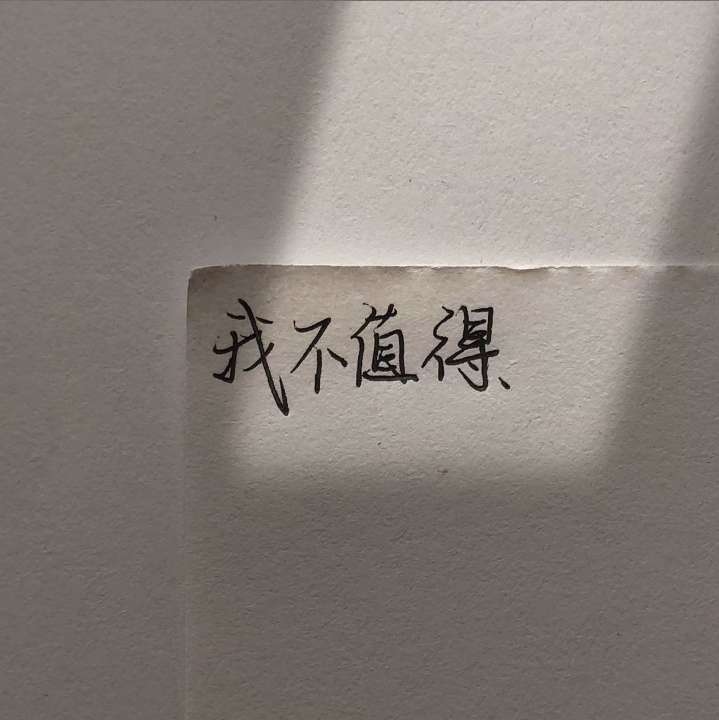 我不值得